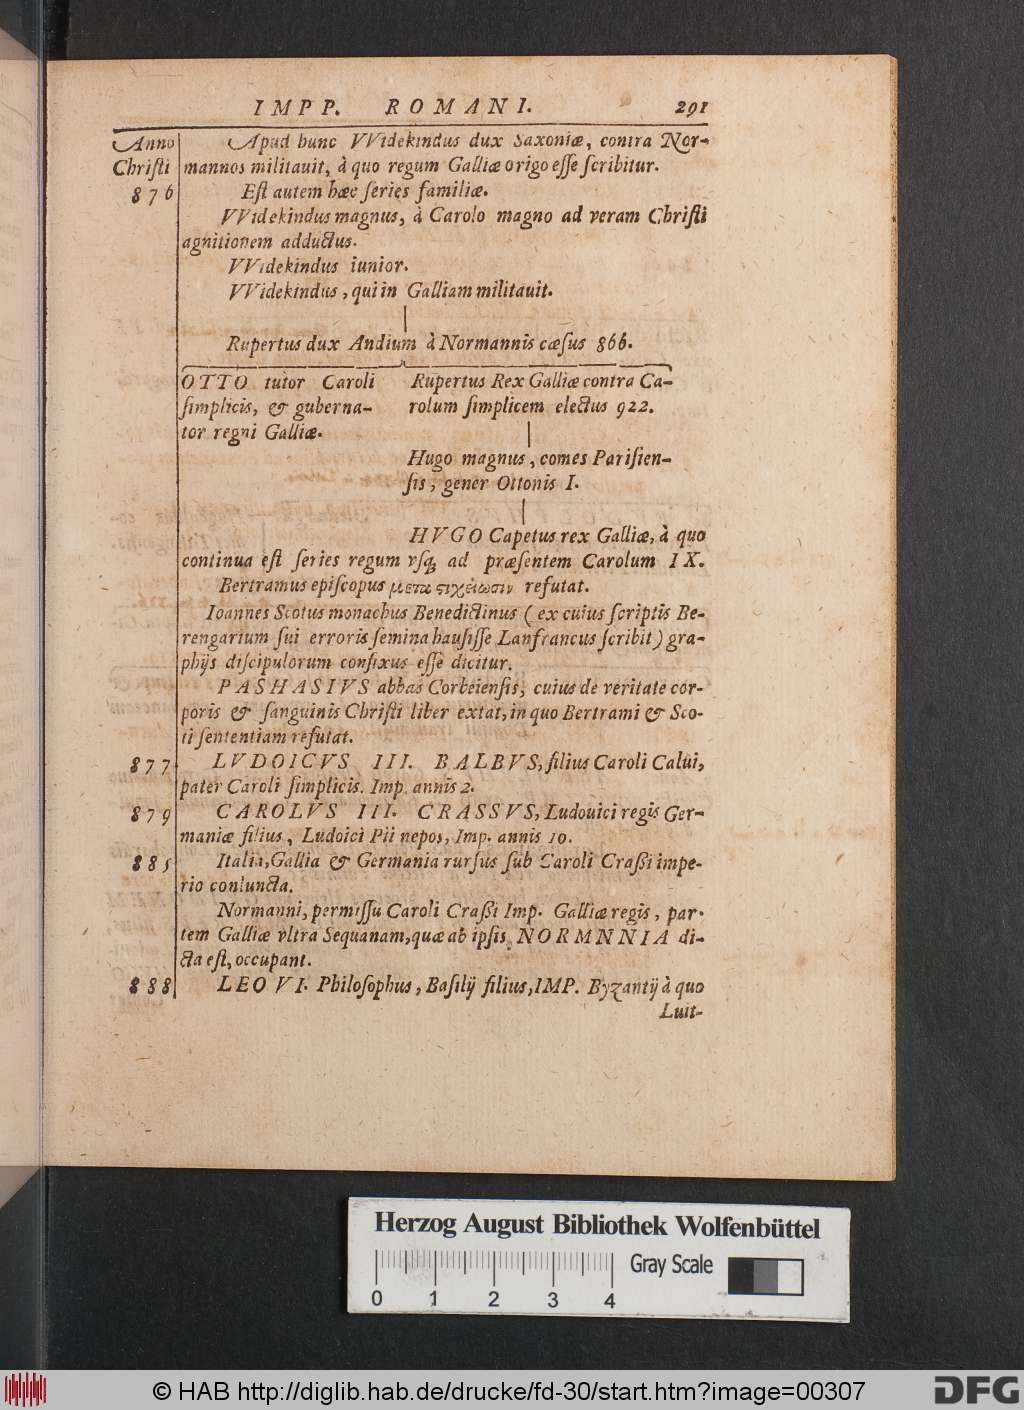 IMPP. ROMANI. 291
Anno Apud hunc VVidekindus dux Saxoniæ, contra Nor-
Christi mannos militauit, à quo regum Galliæ origo esse scribitur.
876 Est autem hæc series familiæ.
VVidekindus magnus, à Carolo magno ad veram Christi
agnitionem adductus.
VVidekindus iunior.
VVidekindus, qui in Galliam militauit.
Rupertus dux Andium à Normannis cæsus 866.
OTTO tutor Caroli
simplicis, & guberna-
tor regni Galliæ.
Rupertus Rex Galliæ contra Ca-
rolum simplicem electus 922.
Hugo magnus, comes Parisien-
sis, gener Ottonis I.
HVGO Capetus rex Galliæ, à quo
continua est series regum vsq, ad præsentem Carolum IX.
Bertramus episcopus μετα στχείωσιν refutat.
Ioannes Scotus monachus Benedictinus (ex cuius scriptis Be-
rengarium sui erroris semina hausisse Lanfrancus scribit) gra-
phijs discipulorum confixus esse dicitur.
PASHASIVS abbas Corbeiensis, cuius de veritate cor-
poris & sanguinis Christi liber extat, in quo Bertrami & Sco-
ti sententiam refutat.
877 LVDOICVS III. BALBVS, filius Caroli Calui,
pater Caroli simplicis. Imp. annis 2.
879 CAROLVS III. CRASSVS, Ludouici regis Ger-
maniæ filius, Ludoici Pii nepos, Imp. annis 10.
885 Italia, Gallia & Germania rursus sub Caroli Crassi impe-
rio coniuncta.
Normanni, permissu Caroli Crassi Imp. Galliæ regis, par-
tem Galliæ vltra Sequanam, quæ ab ipsis NORMNNIA di-
cta est, occupant.
888 LEO VI. Philosophus, Basilij filius, IMP. Byzantij à quo
Luit-
Herzog August Bibliothek Wolfenbüttel
Gray Scale
0 1 2 3 4
© HAB http://diglib.hab.de/drucke/fd-30/start.htm?image=00307
DFG